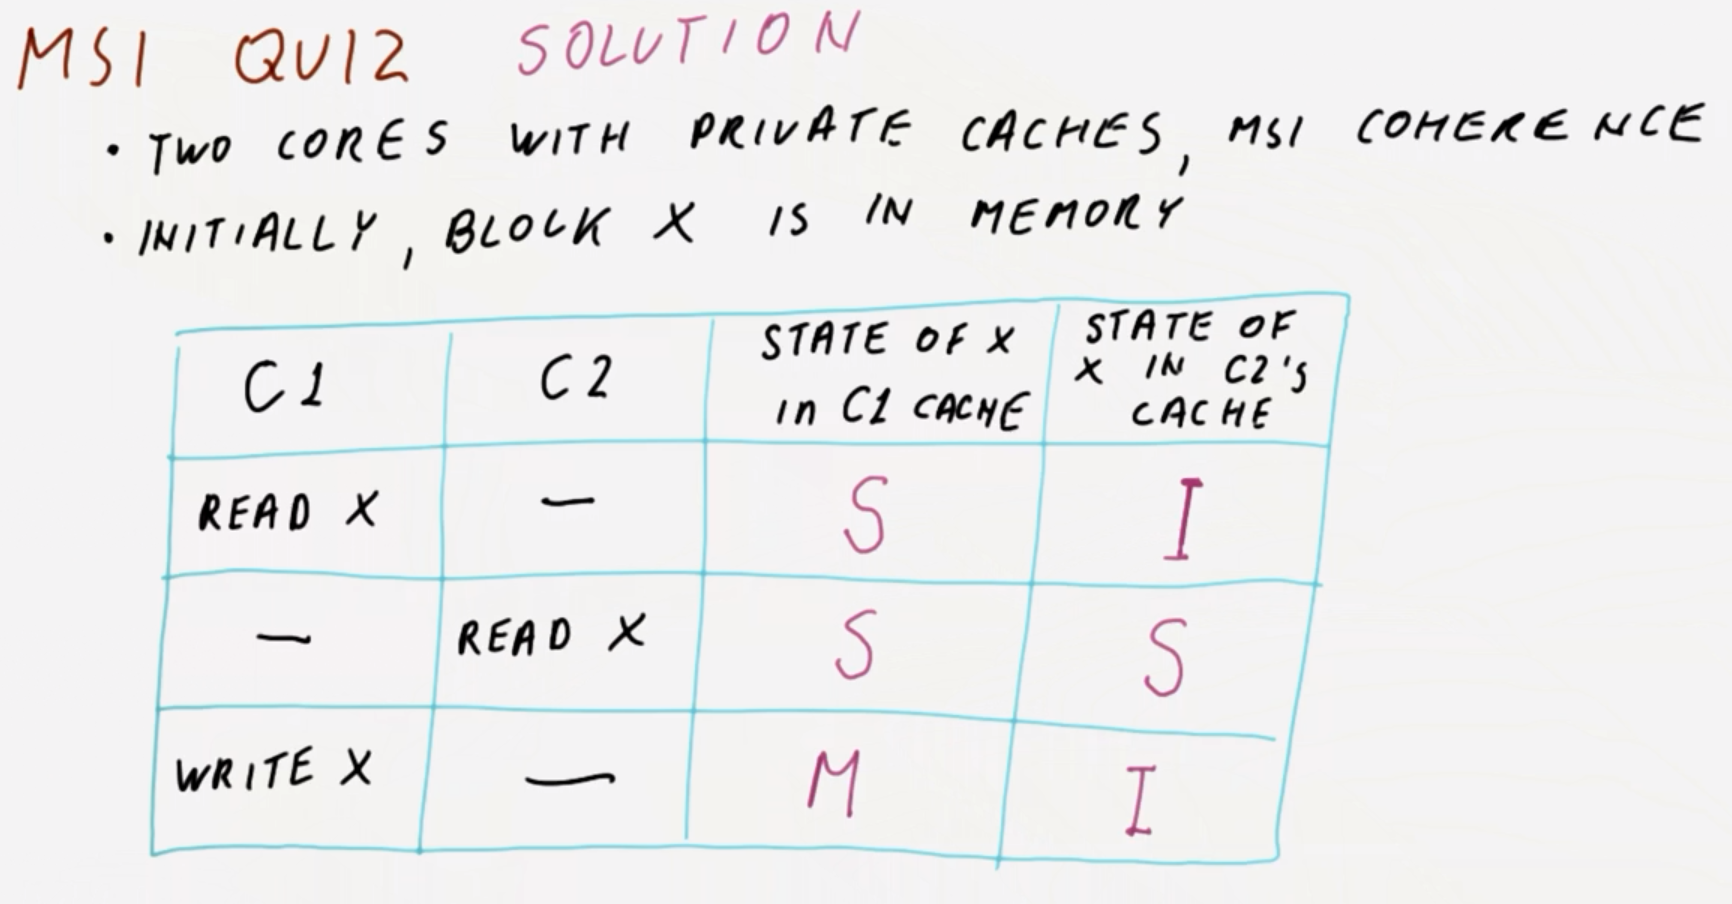 MSI QUIZ SOLUTION
• TWO CORES WITH PRIVATE CACHES, MSI COHERENCE
• INITIALLY, BLOCK X IS IN MEMORY
C1 C2 STATE OF X in C1 CACHE STATE OF X IN C2's CACHE
READ X — S I
— READ X S S
WRITE X — M I